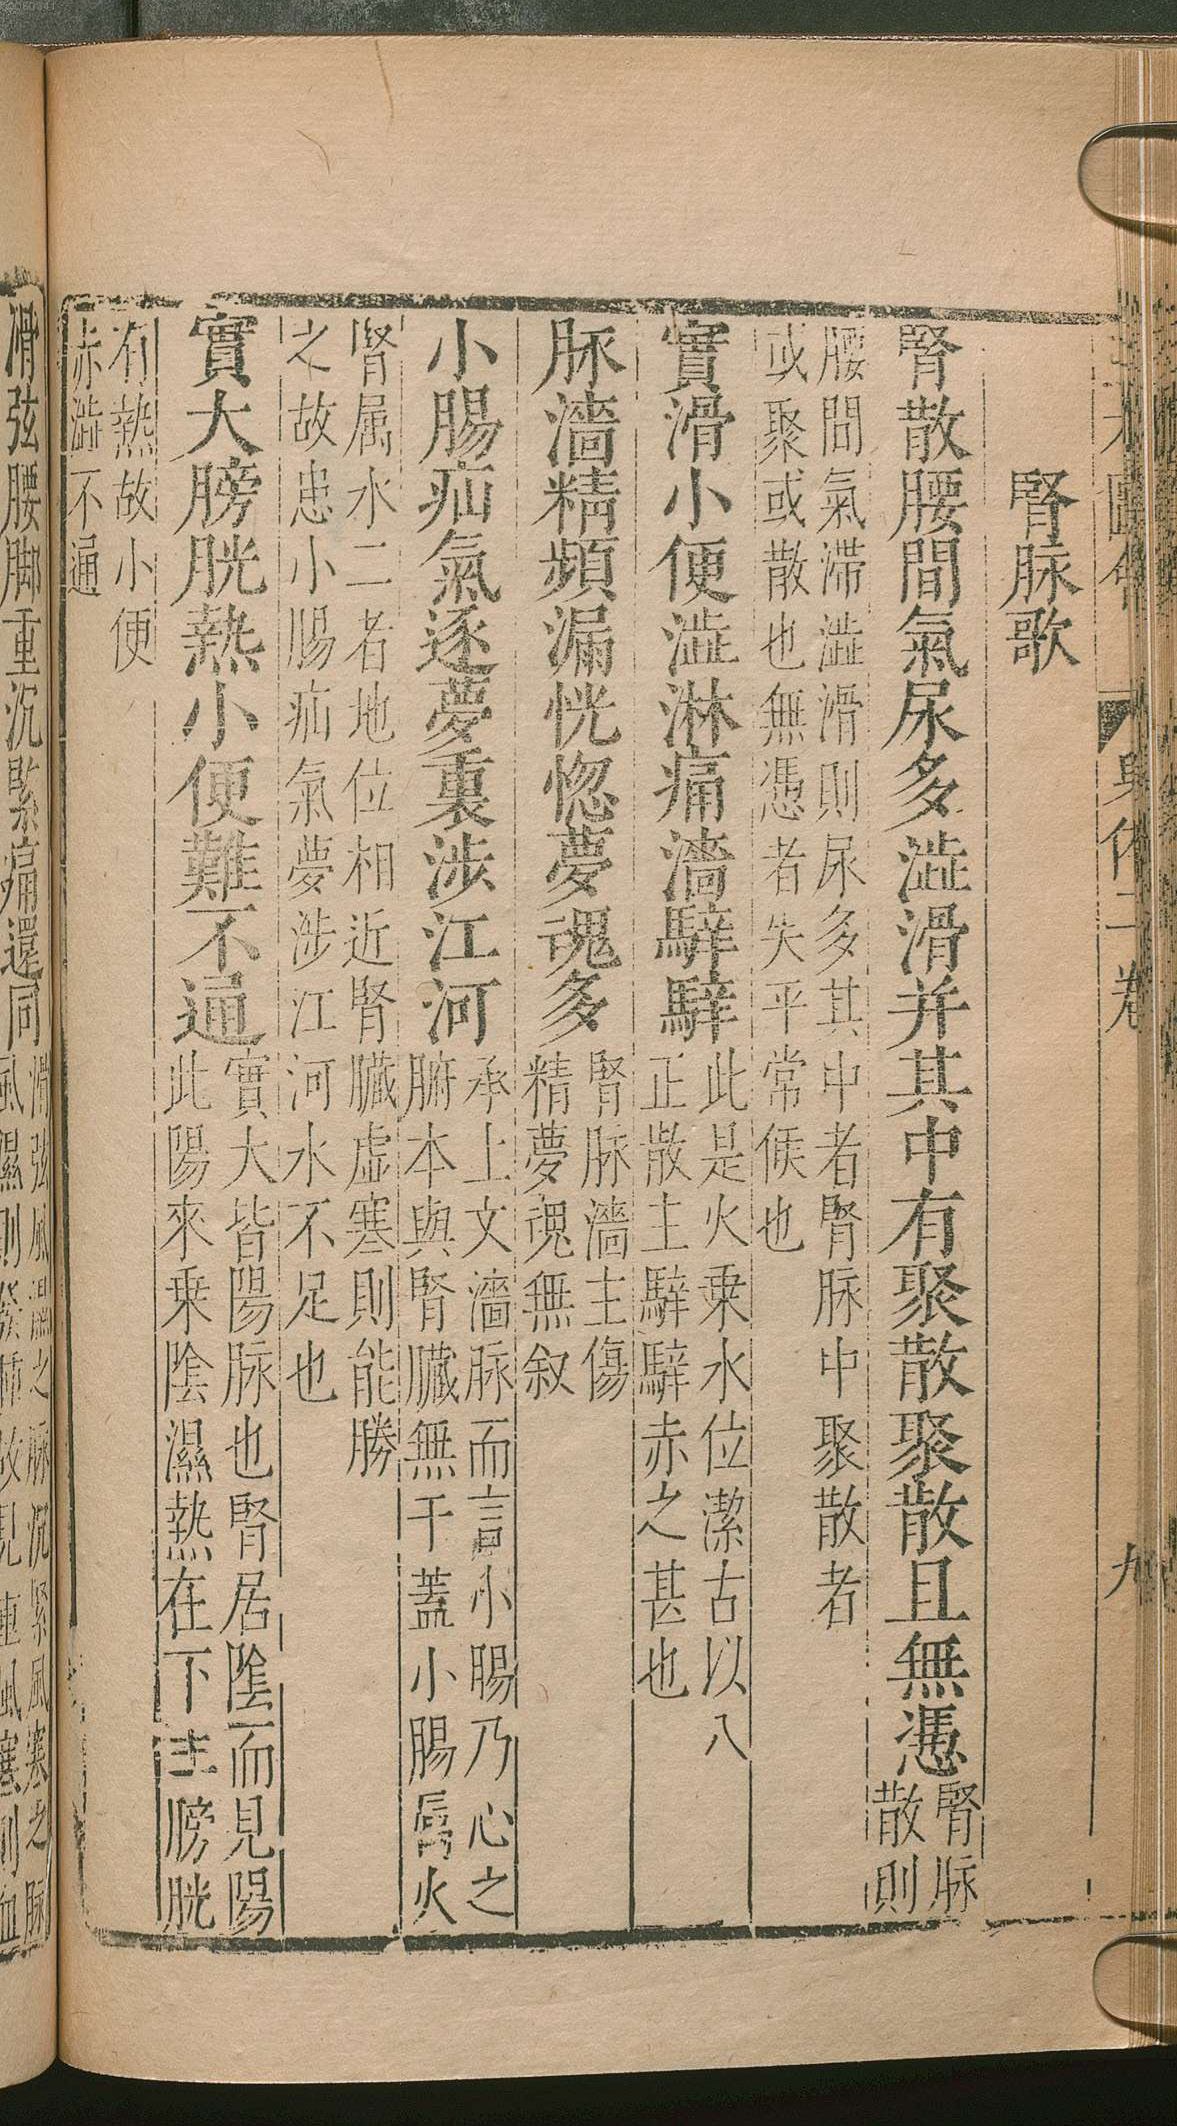 腎脉歌
腎散腰間氣尿多澁滑并其中有聚散聚散且無憑腎脉
散則
腰間氣滯澁滑則尿多其中者腎脉中聚散者
或聚或散也無憑者失平常候也
實滑小便澁淋痛濇騂騂此是火乗水位潔古以八
正散主騂騂赤之甚也
脉濇精頻漏恍惚夢魂多腎脉濇主傷
精夢魂無叙
小腸疝氣逐夢裏涉江河承上文濇脉而言小腸乃心之
腑本與腎臟無干蓋小腸屬火
腎属水二者地位相近腎臟虚寒則能勝
之故患小腸疝氣夢涉江河水不足也
實大膀胱熱小便難不通實大皆陽脉也腎居陰而見陽
此陽來乗陰濕熱在下主膀胱
有熱故小便
赤澁不通
滑弦腰脚重沉緊痛還同滑弦風濕之脉沉緊風寒之脉